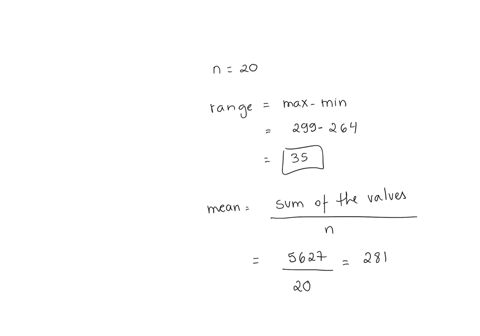 n = 20
range = max - min
= 299 - 264
= 35
mean = sum of the values
n
= 5627 = 281
20